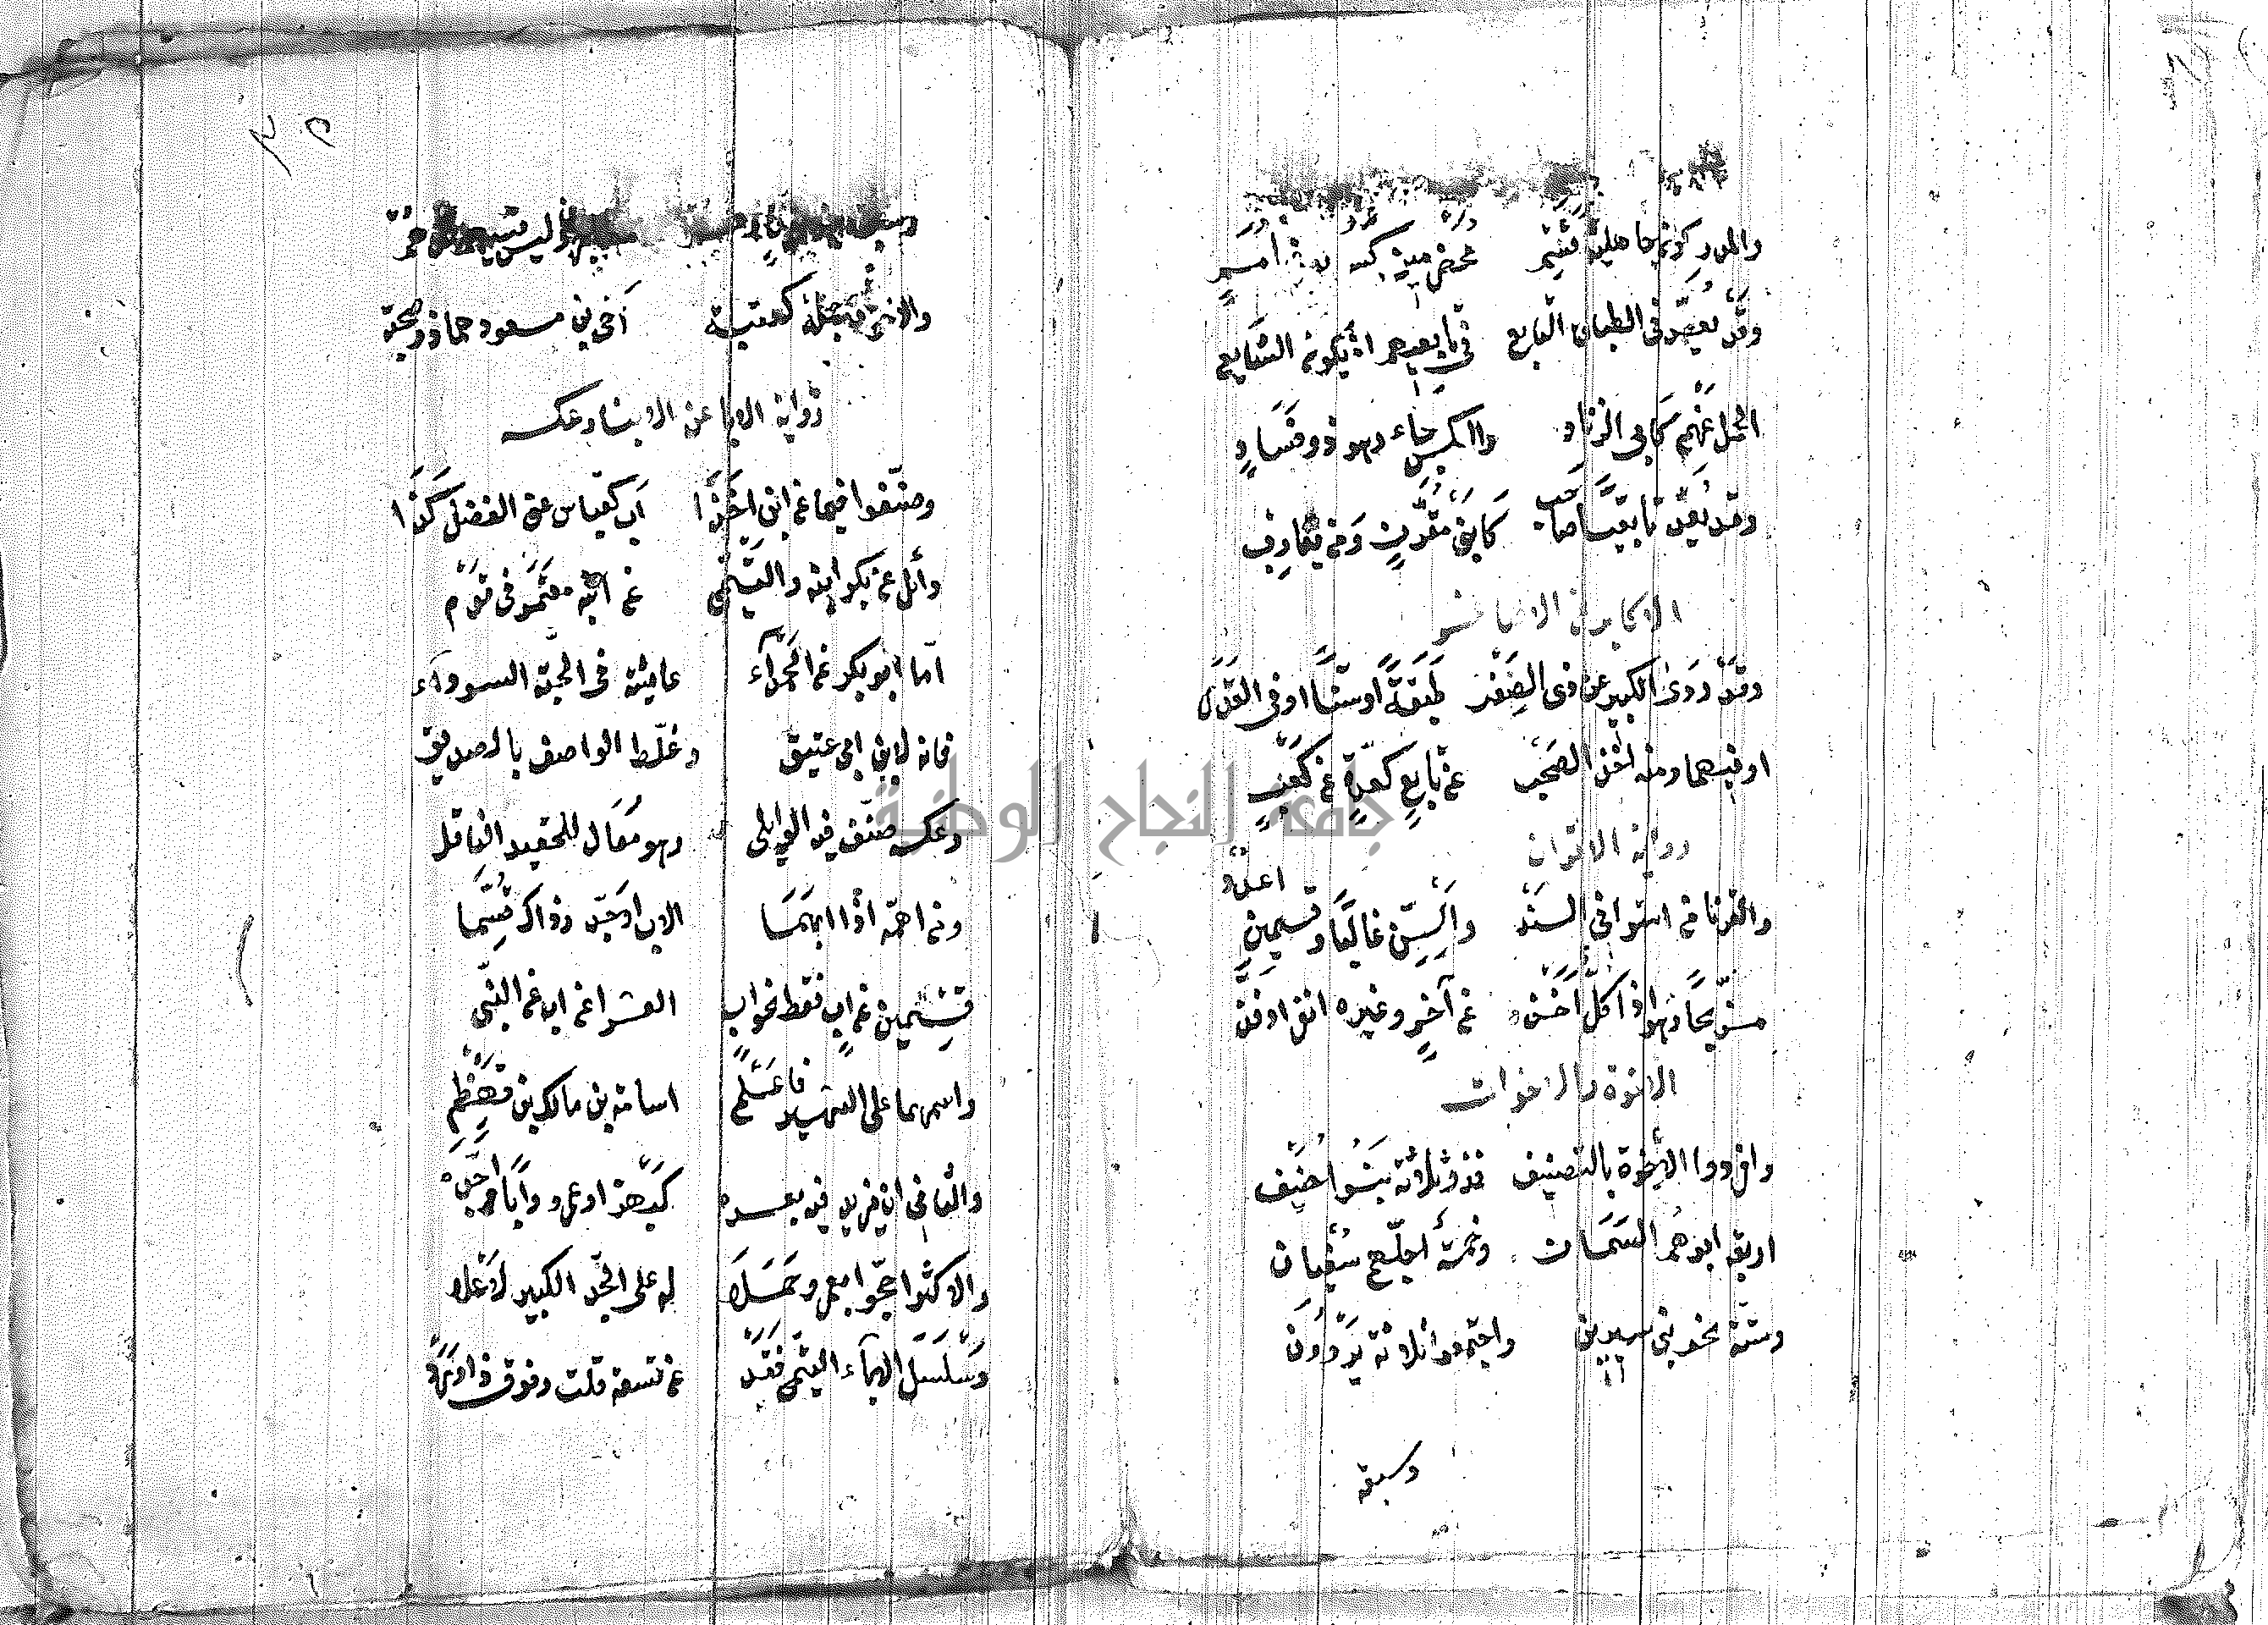 والمدركون جاهلية فسم مخضرمين كسويد في أمم
وقد يعد في الطباق التابع في تابعيهم إذ يكون الشايع
الحمل عنهم كأبي الزناد والعكس جاء وهو ذو فساد
وقد يعد تابعيا صاحب كابني مقرن ومن يقارب
الأكابر عن الأصاغر
وقد روى الكبير عن ذي الصغر طبقة أو سنا أو في القدر
أو فيهما ومنه أخذ الصحب عن تابع كعدة عن كعب
رواية الأقران
والقرنا من استووا في السند والسن غالبا وقسمين اعدد
مدبجا وهو إذا كل أخذ عن آخر وغيره انفراد فذ
الإخوة والأخوات
وأفردوا الإخوة بالتصنيف فذو ثلاثة بنو حنيف
أربعة أبوهم السمان وخمسة أجلهم سفيان
وستة نحو بني سيرين واجتمعوا ثلاثة يروون
وسبعة
جامعة النجاح الوطنية
٣٥
والأخوان جملة كعتبة أخي ابن مسعود هما ذو صحبة
رواية الآبا عن الأبناء وعكسه
وصنفوا فيما عن ابن أخذا أب كعباس عن الفضل كذا
وائل عن بكر ابنه والتيمي عن ابنه معتمر في قوم
أما أبو بكر عن الحمراء عايشة في الحبة السوداء
فإنه لابن أبي عتيق وغلط الواصف بالصديق
وعكسه صنف فيه الوايلي وهو معال للحفيد الناقل
ومن أهمه إذا ما أبهما الأب أو جد وذاك قسما
قسمين عن أب فقط نحو أبي العشرا عن أبه عن النبي
واسمهما على الشهير فاعلم أسامة بن مالك بن قهطم
والثاني أن يزيد فيه بعده كبهز أو عمرو أبا أو جده
والأكثر احتجوا بعمرو حملا له على الجد الكبير الأعلى
وسلسل الآباء التيمي فعد عن تسعة قلت وفوق ذا ورد